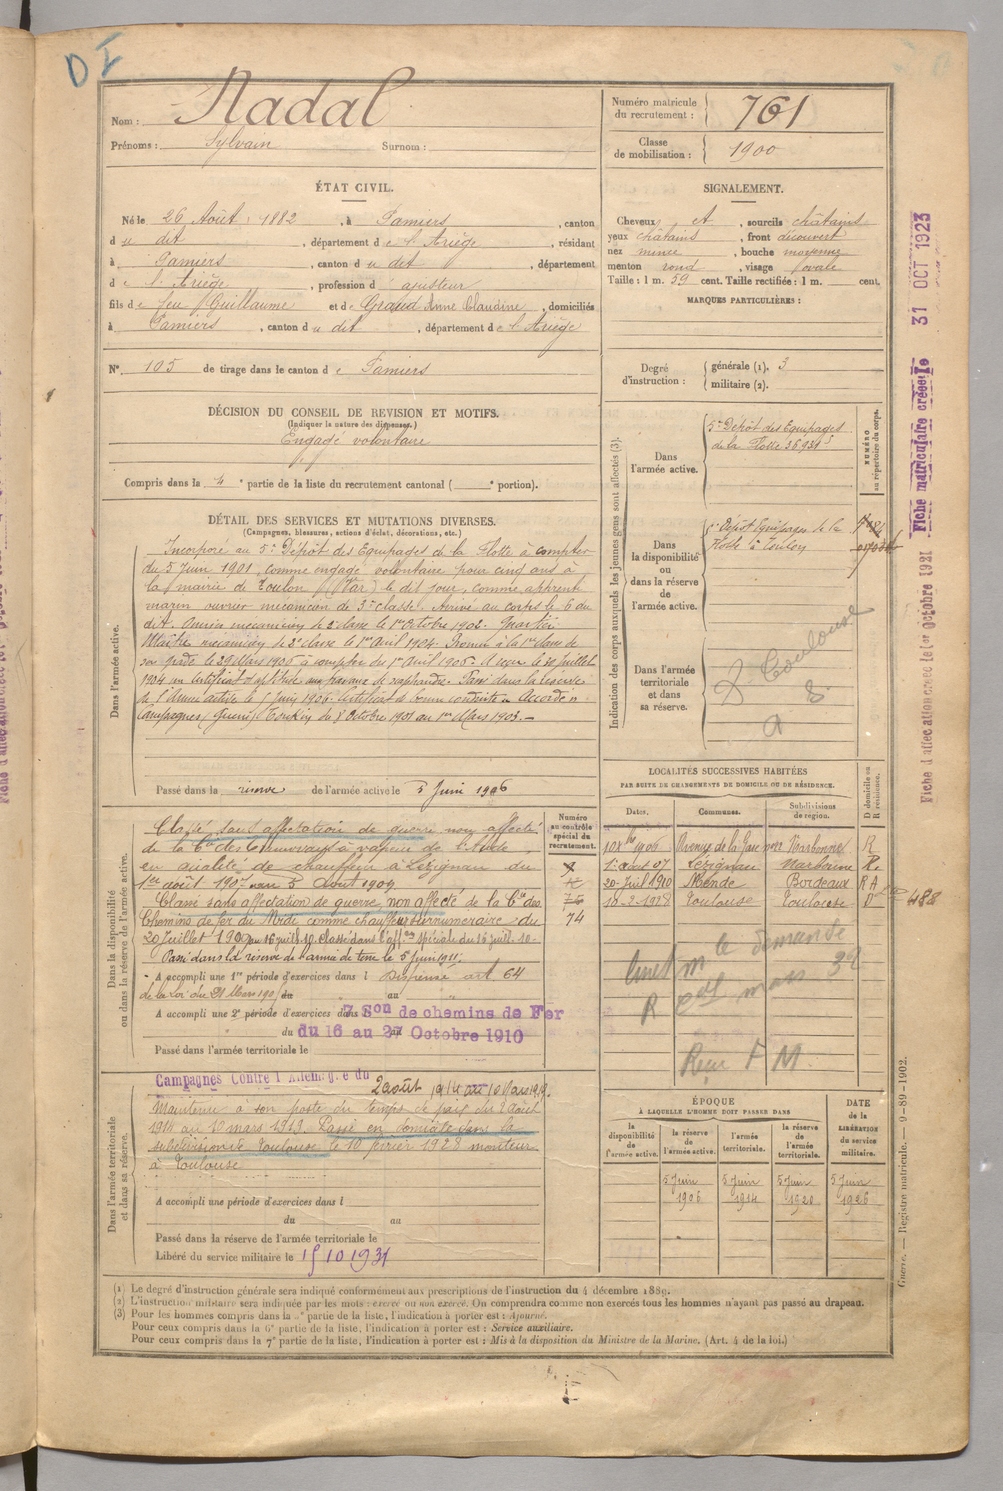 D I
Nom : Nadal
Prénoms : Sylvain Surnom :
Numéro matricule du recrutement : 761
Classe de mobilisation : 1900
ÉTAT CIVIL.
Né le 26 Août 1882, à Pamiers, canton
du dit, département de l'Ariège, résidant
à Pamiers, canton du dit, département
de l'Ariège, profession d'ajusteur
fils de feu Guillaume et de Graud Anne Claudine, domiciliés
à Pamiers, canton du dit, département de l'Ariège
N° 105 de tirage dans le canton de Pamiers
SIGNALEMENT.
Cheveux et, sourcils châtains
yeux châtains, front découvert
nez mince, bouche moyenne
menton rond, visage ovale
Taille : 1 m. 59 cent. Taille rectifiée : 1 m. cent.
MARQUES PARTICULIÈRES :
Degré d'instruction : générale (1). 3
militaire (2).
DÉCISION DU CONSEIL DE REVISION ET MOTIFS.
(Indiquer la nature des dispenses.)
Engagé volontaire
Compris dans la 4e partie de la liste du recrutement cantonal ( e portion).
DÉTAIL DES SERVICES ET MUTATIONS DIVERSES.
(Campagnes, blessures, actions d'éclat, décorations, etc.)
Dans l'armée active.
Incorporé au 5e Dépôt des Equipages de la Flotte à compter
du 5 Juin 1901, comme engagé volontaire pour cinq ans à
la mairie de Toulon (Var) le dit jour, comme apprenti
marin ouvrier mécanicien de 3e classe. Arrivé au corps le 6 du
dit. Ouvrier mécanicien de 2e classe le 1er Octobre 1902. Quartier
Maître mécanicien de 2e classe le 1er Avril 1904. Promu à la 1re classe de
son grade le 29 Mars 1905 à compter du 1er Avril 1905. A reçu le 30 Juillet
1904 un certificat d'aptitude aux travaux de scaphandre. Passé dans la réserve
de l'Armée active le 5 Juin 1906. Certificat de bonne conduite "Accordé".
Campagnes, Guerre, Tonkin du 8 Octobre 1901 au 1er Mars 1903.
Passé dans la réserve de l'armée active le 5 Juin 1906
Indication des corps auxquels les jeunes gens sont affectés (3).
NUMÉRO au répertoire du corps.
Dans l'armée active.
5e Dépôt des Equipages
de la Flotte 36931
Dans la disponibilité ou dans la réserve de l'armée active.
Dépôt Equipages de la
Flotte à Toulon
Dans l'armée territoriale et dans sa réserve.
Toulouse
LOCALITÉS SUCCESSIVES HABITÉES
PAR SUITE DE CHANGEMENTS DE DOMICILE OU DE RÉSIDENCE.
Dates. Communes. Subdivisions de région. D domicile ou R résidence.
1906 Avenue de la Gare Narbonne R
1er août 07 Lézignan Narbonne R
20 Juil 1910 Mende Bordeaux R A
10-2-1928 Toulouse Toulouse D 488
Dans la disponibilité ou dans la réserve de l'armée active.
Numéro au contrôle spécial du recrutement.
74
Classé sans affectation de guerre, non affecté
de la Cie des Tramways à vapeur de l'Aude
en qualité de chauffeur à Lézignan du
1er août 1907 au 5 Août 1909
Classé sans affectation de guerre, non affecté de la Cie des
Chemins de fer du Midi comme chauffeur surnuméraire du
20 Juillet 1909 au 16 juill. 10. Classé dans l'aff. spéciale du 16 juill. 10
Passé dans la réserve de l'armée de terre le 5 juin 1911.
A accompli une 1re période d'exercices dans l Dispensé art. 64
de la Loi du 21 Mars 1905 du au
A accompli une 2e période d'exercices dans 7 Son de chemins de Fer
du du 16 au 27 Octobre 1910
Passé dans l'armée territoriale le
R
Reçu F M
Dans l'armée territoriale et dans sa réserve.
Campagnes Contre l'Allemagne du 2 août 1914 au 10 Mars 1919.
Maintenu à son poste du temps de paix du 2 août
1914 au 10 mars 1919. Passé en domicile dans la
subdivision de Toulouse le 10 février 1928 monteur
à Toulouse
A accompli une période d'exercices dans l
du au
Passé dans la réserve de l'armée territoriale le
Libéré du service militaire le 15 10 1931
ÉPOQUE
À LAQUELLE L'HOMME DOIT PASSER DANS
la disponibilité de l'armée active. la réserve de l'armée active. l'armée territoriale. la réserve de l'armée territoriale. DATE de la LIBÉRATION du service militaire.
5 Juin 1906 5 Juin 1914 5 Juin 1920 5 Juin 1926
(1) Le degré d'instruction générale sera indiqué conformément aux prescriptions de l'instruction du 4 décembre 1889.
(2) L'instruction militaire sera indiquée par les mots : exercé ou non exercé. On comprendra comme non exercés tous les hommes n'ayant pas passé au drapeau.
(3) Pour les hommes compris dans la 5e partie de la liste, l'indication à porter est : Ajourné.
Pour ceux compris dans la 6e partie de la liste, l'indication à porter est : Service auxiliaire.
Pour ceux compris dans la 7e partie de la liste, l'indication à porter est : Mis à la disposition du Ministre de la Marine. (Art. 4 de la loi.)
Fiche d'affectation créée le 1er Octobre 1921 Fiche matriculaire créée le 31 OCT 1923
Guerre. — Registre matricule. — 9-89-1902.